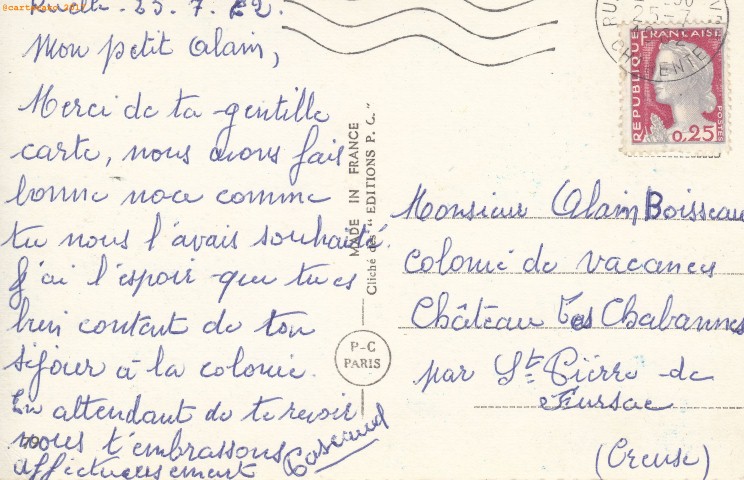 @cartorato 201
Ruelle 23.7.62.
Mon petit Alain,
Merci de ta gentille
carte, nous avons fais
bonne noce comme
tu nous l'avais souhaité.
J'ai l'espoir que tu es
bien content de ton
séjour à la colonie.
En attendant de te revoir
nous t'embrassons
affectueusement
MADE IN FRANCE
Cliché des "EDITIONS P. C."
P-C
PARIS
RÉPUBLIQUE FRANÇAISE
0,25
POSTES
Monsieur Alain Boisseau
Colonie de vacances
Château Les Chabannes
par St Pierre de
Fursac
(Creuse)